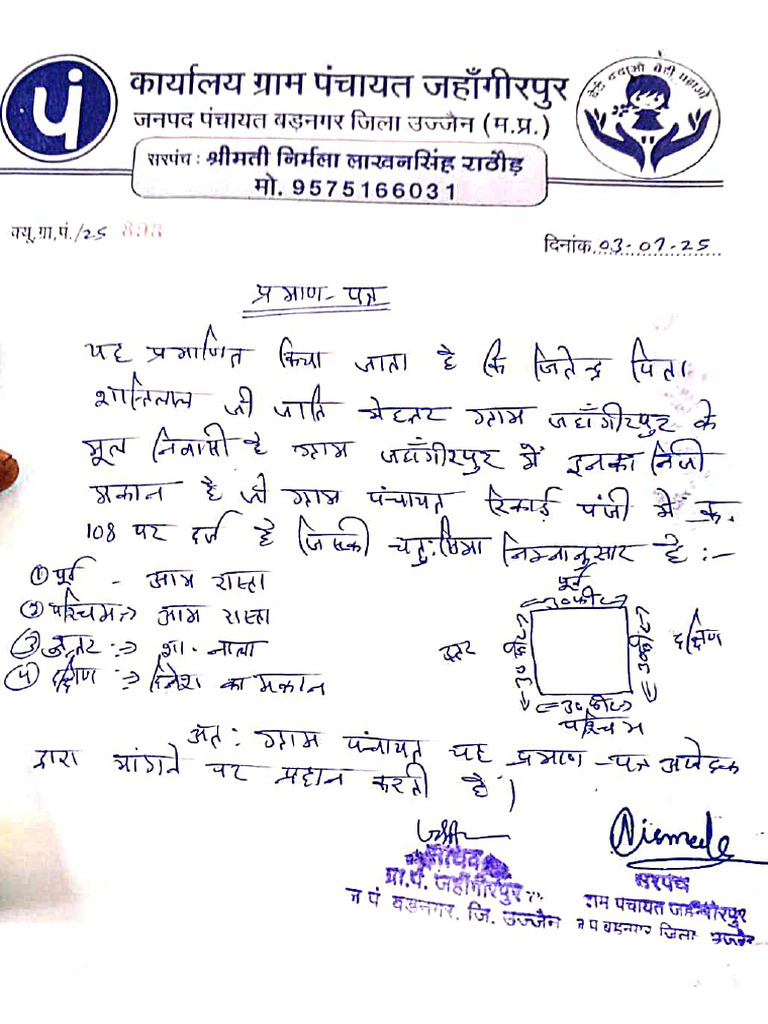 पं
कार्यालय ग्राम पंचायत जहाँगीरपुर
जनपद पंचायत बड़नगर जिला उज्जैन (म.प्र.)
सरपंच : श्रीमती निर्मला लाखनसिंह राठौड़
मो. 9575166031
बेटी बचाओ बेटी पढ़ाओ
क्यू.ग्रा.पं./25 893
दिनांक. 03-07-25
प्रमाण-पत्र
यह प्रमाणित किया जाता है कि जितेन्द्र पिता
शान्तिलाल जी जाति मेहतर ग्राम जहाँगीरपुर के
मूल निवासी है ग्राम जहाँगीरपुर में इनका निजी
मकान है जो ग्राम पंचायत रिकार्ड पंजी में क्र.
108 पर दर्ज है जिसकी चतु:सिमा निम्नानुसार है :-
① पूर्व - आम रास्ता
② पश्चिम → आम रास्ता
③ उत्तर :→ शा. नाला
④ दक्षिण :→ दिनेश का मकान
पूर्व
30 फीट
उत्तर
30 फीट
30 फीट
दक्षिण
30 फीट
पश्चिम
अत: ग्राम पंचायत यह प्रमाण-पत्र आवेदक
द्वारा मांगने पर प्रदान करती है।
सचिव
ग्रा.पं. जहाँगीरपुर
ज पं बड़नगर. जि. उज्जैन
सरपंच
ग्राम पंचायत जहाँगीरपुर
ज प बड़नगर जिला उज्जैन